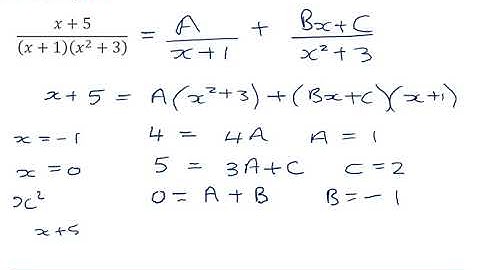 (x + 5)/((x + 1)(x² + 3)) = A/(x+1) + (Bx+C)/(x²+3)
x+5 = A(x²+3) + (Bx+C)(x+1)
x=-1 4 = 4A A = 1
x=0 5 = 3A+C C=2
x² 0=A+B B=-1
x+5